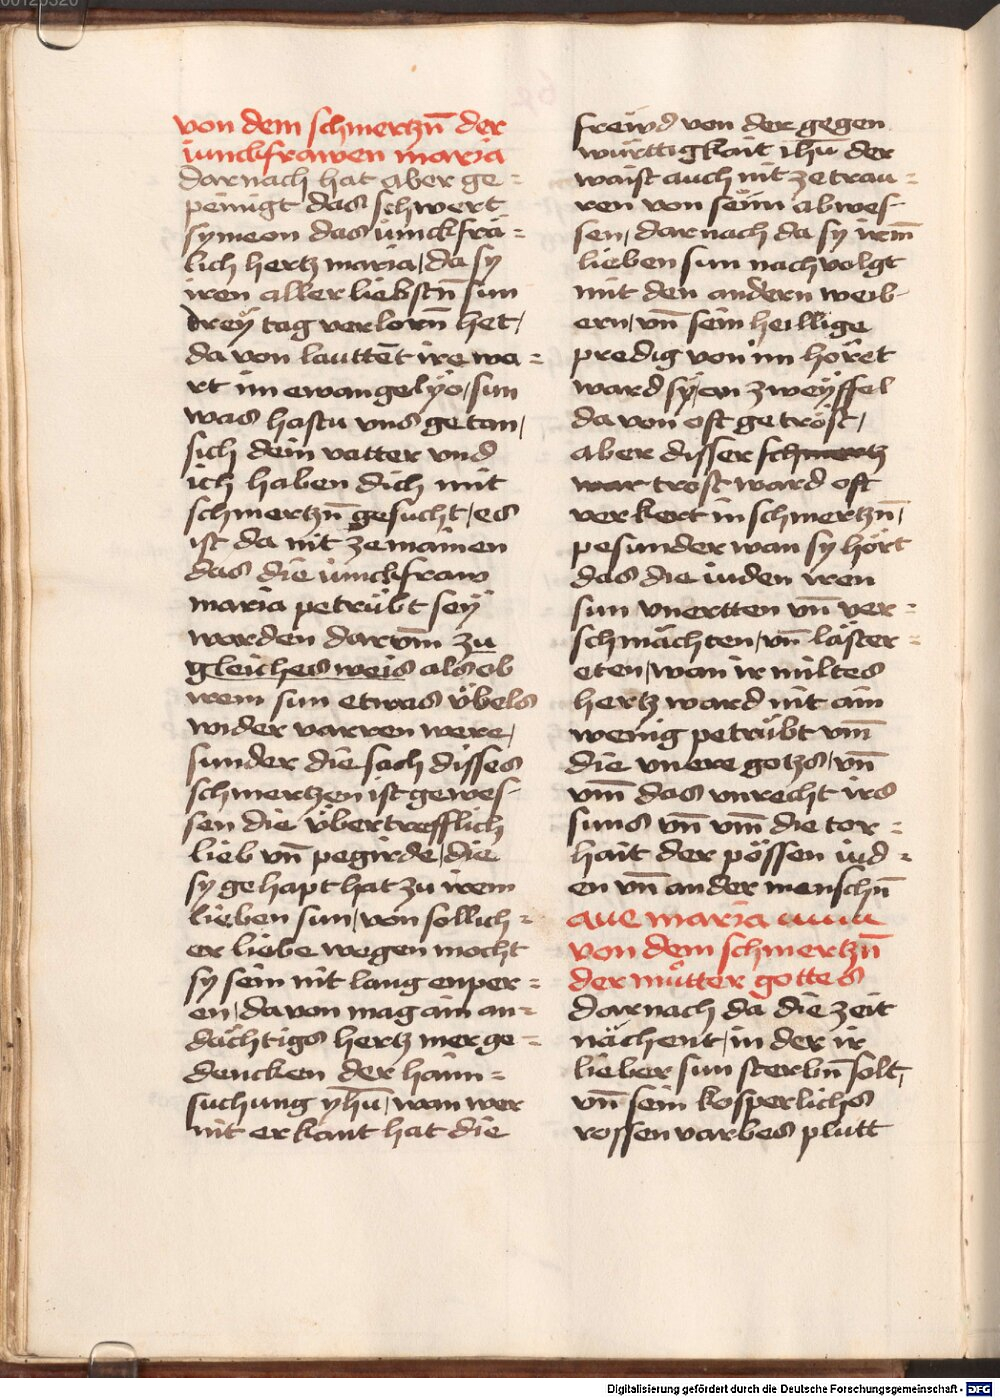 von dem schmertzn̄ der
iunckfrawen maria
darnach hat aber ge=
peinigt das schwert
symeon das iunckfrä=
lich hertz maria / da sy
iren aller liebstn̄ sun
dreÿ tag verlorn̄ het /
da von lauttēt ire wa=
rt im ewangelÿo / sun
was hastu vns getan /
sich dein vatter vnd
ich haben dich mit
schmertzn̄ gesucht / es
ist da nit ze mainen
das die iunckfraw
maria petrübt seÿ
warden darvm̄ zu
gleiches weis als ob
irem sun etwas übels
wider varren were /
sunder die sach disses
schmertzen ist gewes-
sen die übertrefflich
lieb vn̄ pegirde / die
sy gehapt hat zu irem
lieben sun / von sollich=
er liebe wegen mocht
sy sein nit lang enper=
en / da von mag ain an=
dächtigs hertz mer ge=
dencken der haim=
suchung yhū / wan wer
nit erkant hat die
freẅd von der gegen
württigkait ihū der
waist auch nit ze trau=
ren von seim abwes-
sen / darnach da sy irm̄
lieben sun nach volgt
mit den andern weib-
ern / vn̄ sein heillige
predig von im höret
ward sÿ / on zweÿffel
da von oft getröst /
aber disser schmertz
war trost ward oft
verkert in schmertzn̄ /
pesunder wan sy hört
das die iuden iren
sun vnertten vn̄ ver=
schmächten / vn̄ läster=
eten / wan ir miltes
hertz ward nit ain
wenig petrübt vm̄
die vnere gotzs / vn̄
vm̄ das vnrecht irs
suns vn̄ vm̄ die tor=
hait der pössen iud=
en vn̄ ander menschn̄
aue maria
von dem schmertzn̄
der mütter gottes
darnach da die zeit
nächent / in der ir
lieber sun sterbn̄ solt /
vn̄ sein kosperlichs
rossenvarbes plutt
Digitalisierung gefördert durch die Deutsche Forschungsgemeinschaft - DFG